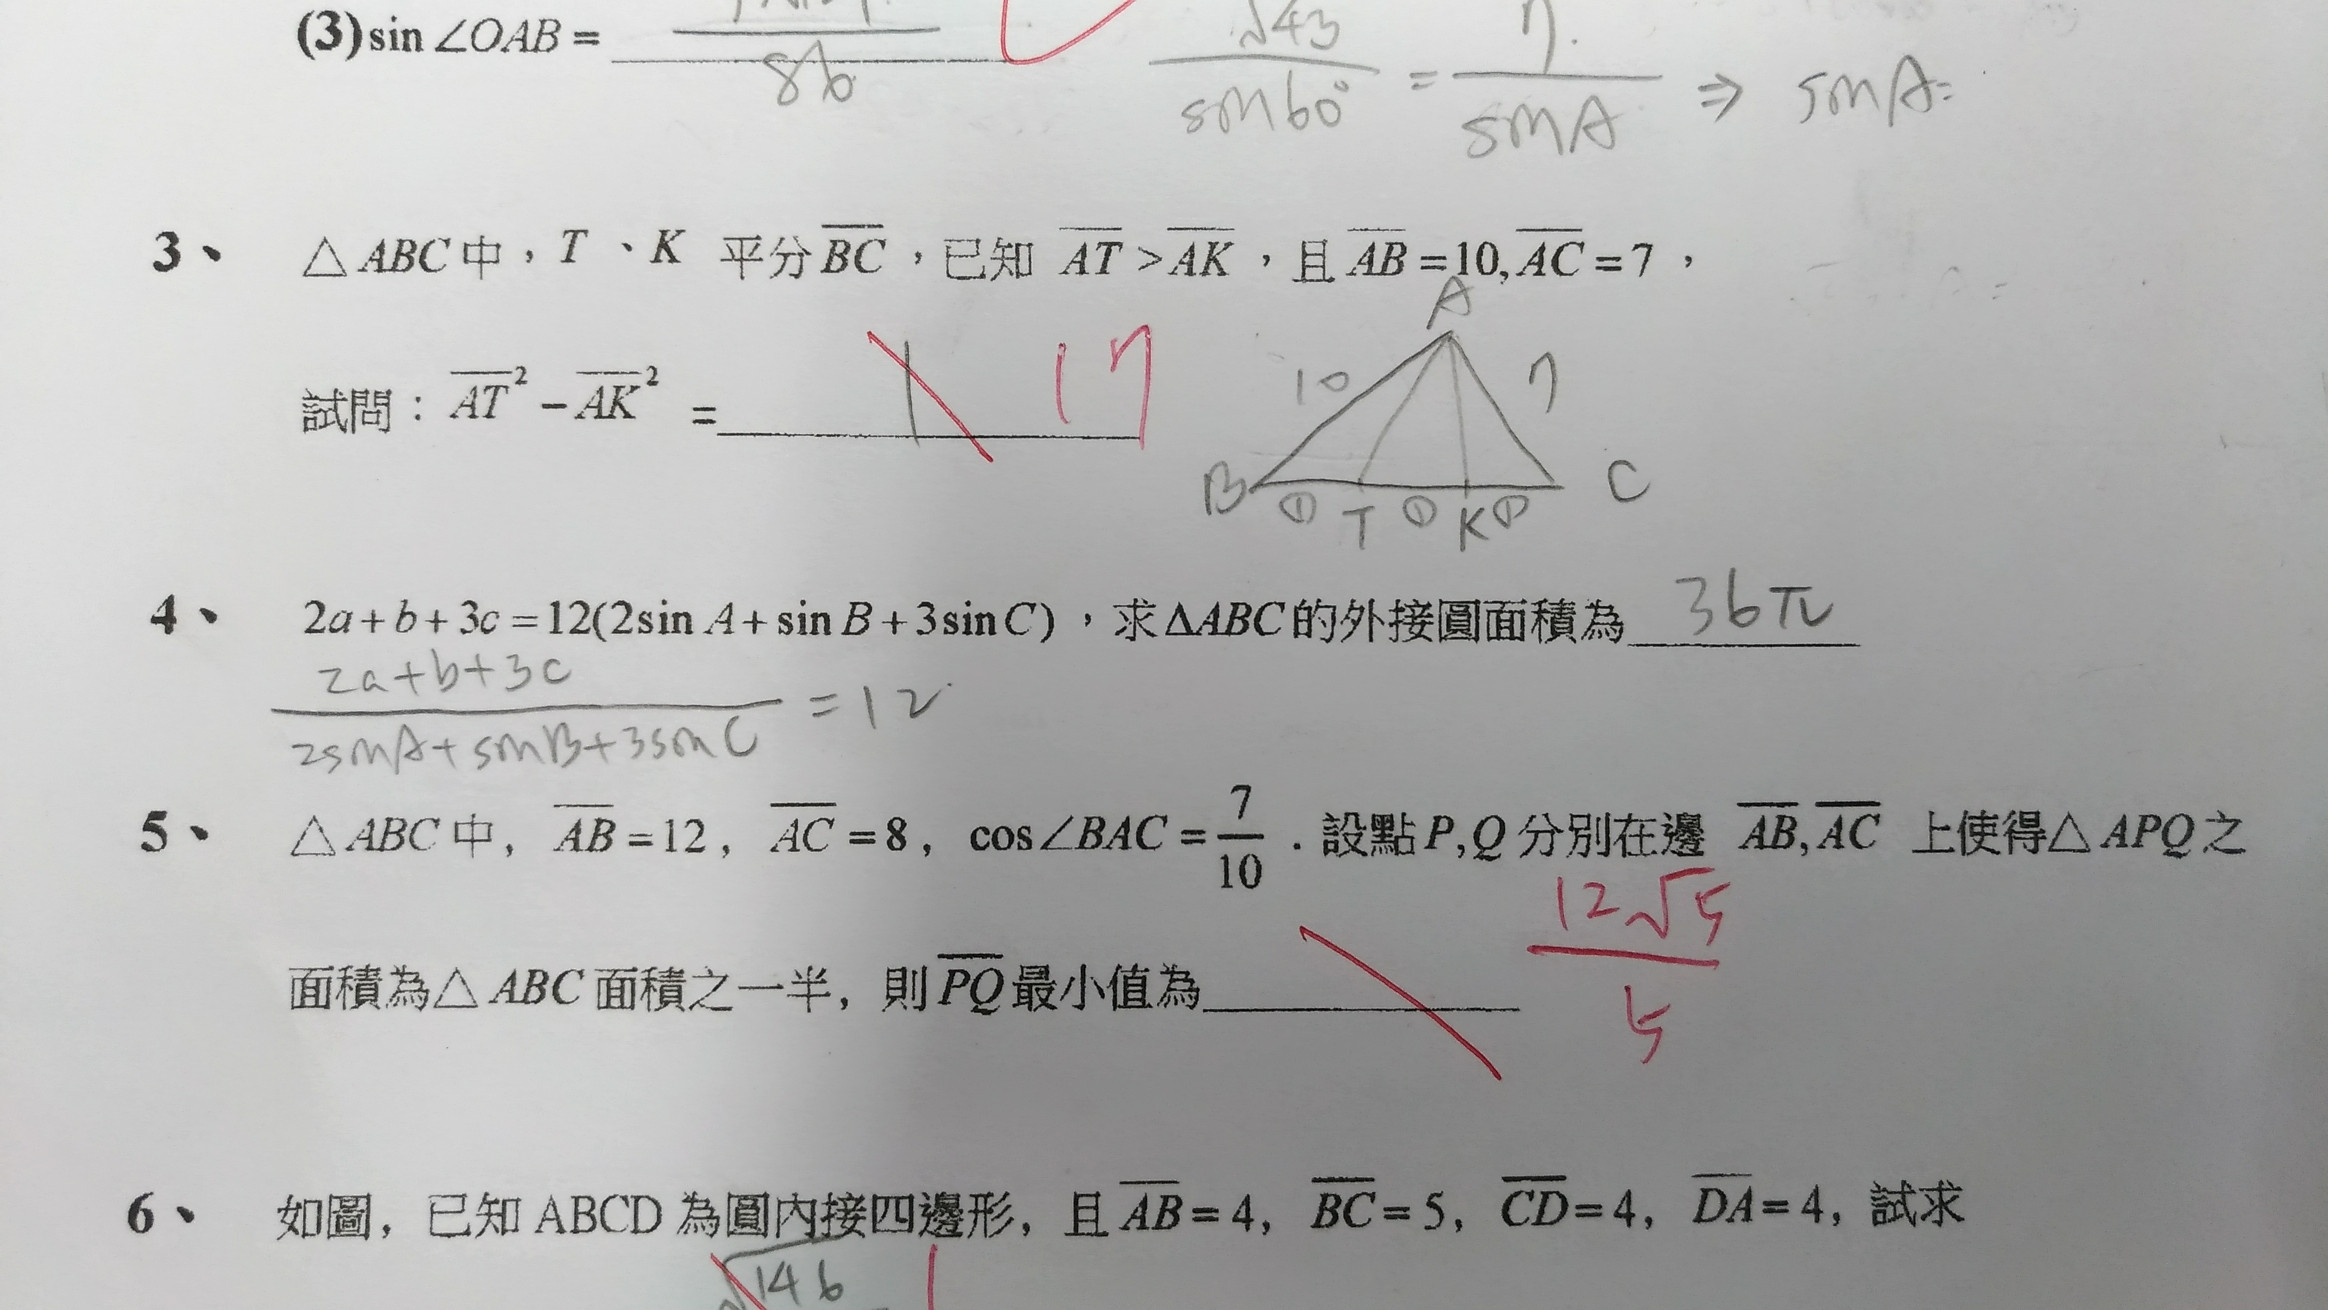 (3)sin∠OAB=
86
√43
7.
sin60° = sinA ⇒ sinA=
3、 △ABC中，T、K 平分BC，已知 AT>AK，且AB=10,AC=7，
A
試問：AT²−AK² = 1 17
10 7
B ① T ① K ① C
4、 2a+b+3c=12(2sinA+sinB+3sinC)，求ΔABC的外接圓面積為 36π
2a+b+3c
=12
2sinA+sinB+3sinC
5、 △ABC中, AB=12, AC=8, cos∠BAC=7/10．設點P,Q分別在邊 AB,AC 上使得△APQ之
12√5
面積為△ABC面積之一半, 則PQ最小值為
5
6、 如圖, 已知ABCD為圓內接四邊形, 且AB=4, BC=5, CD=4, DA=4, 試求
√146